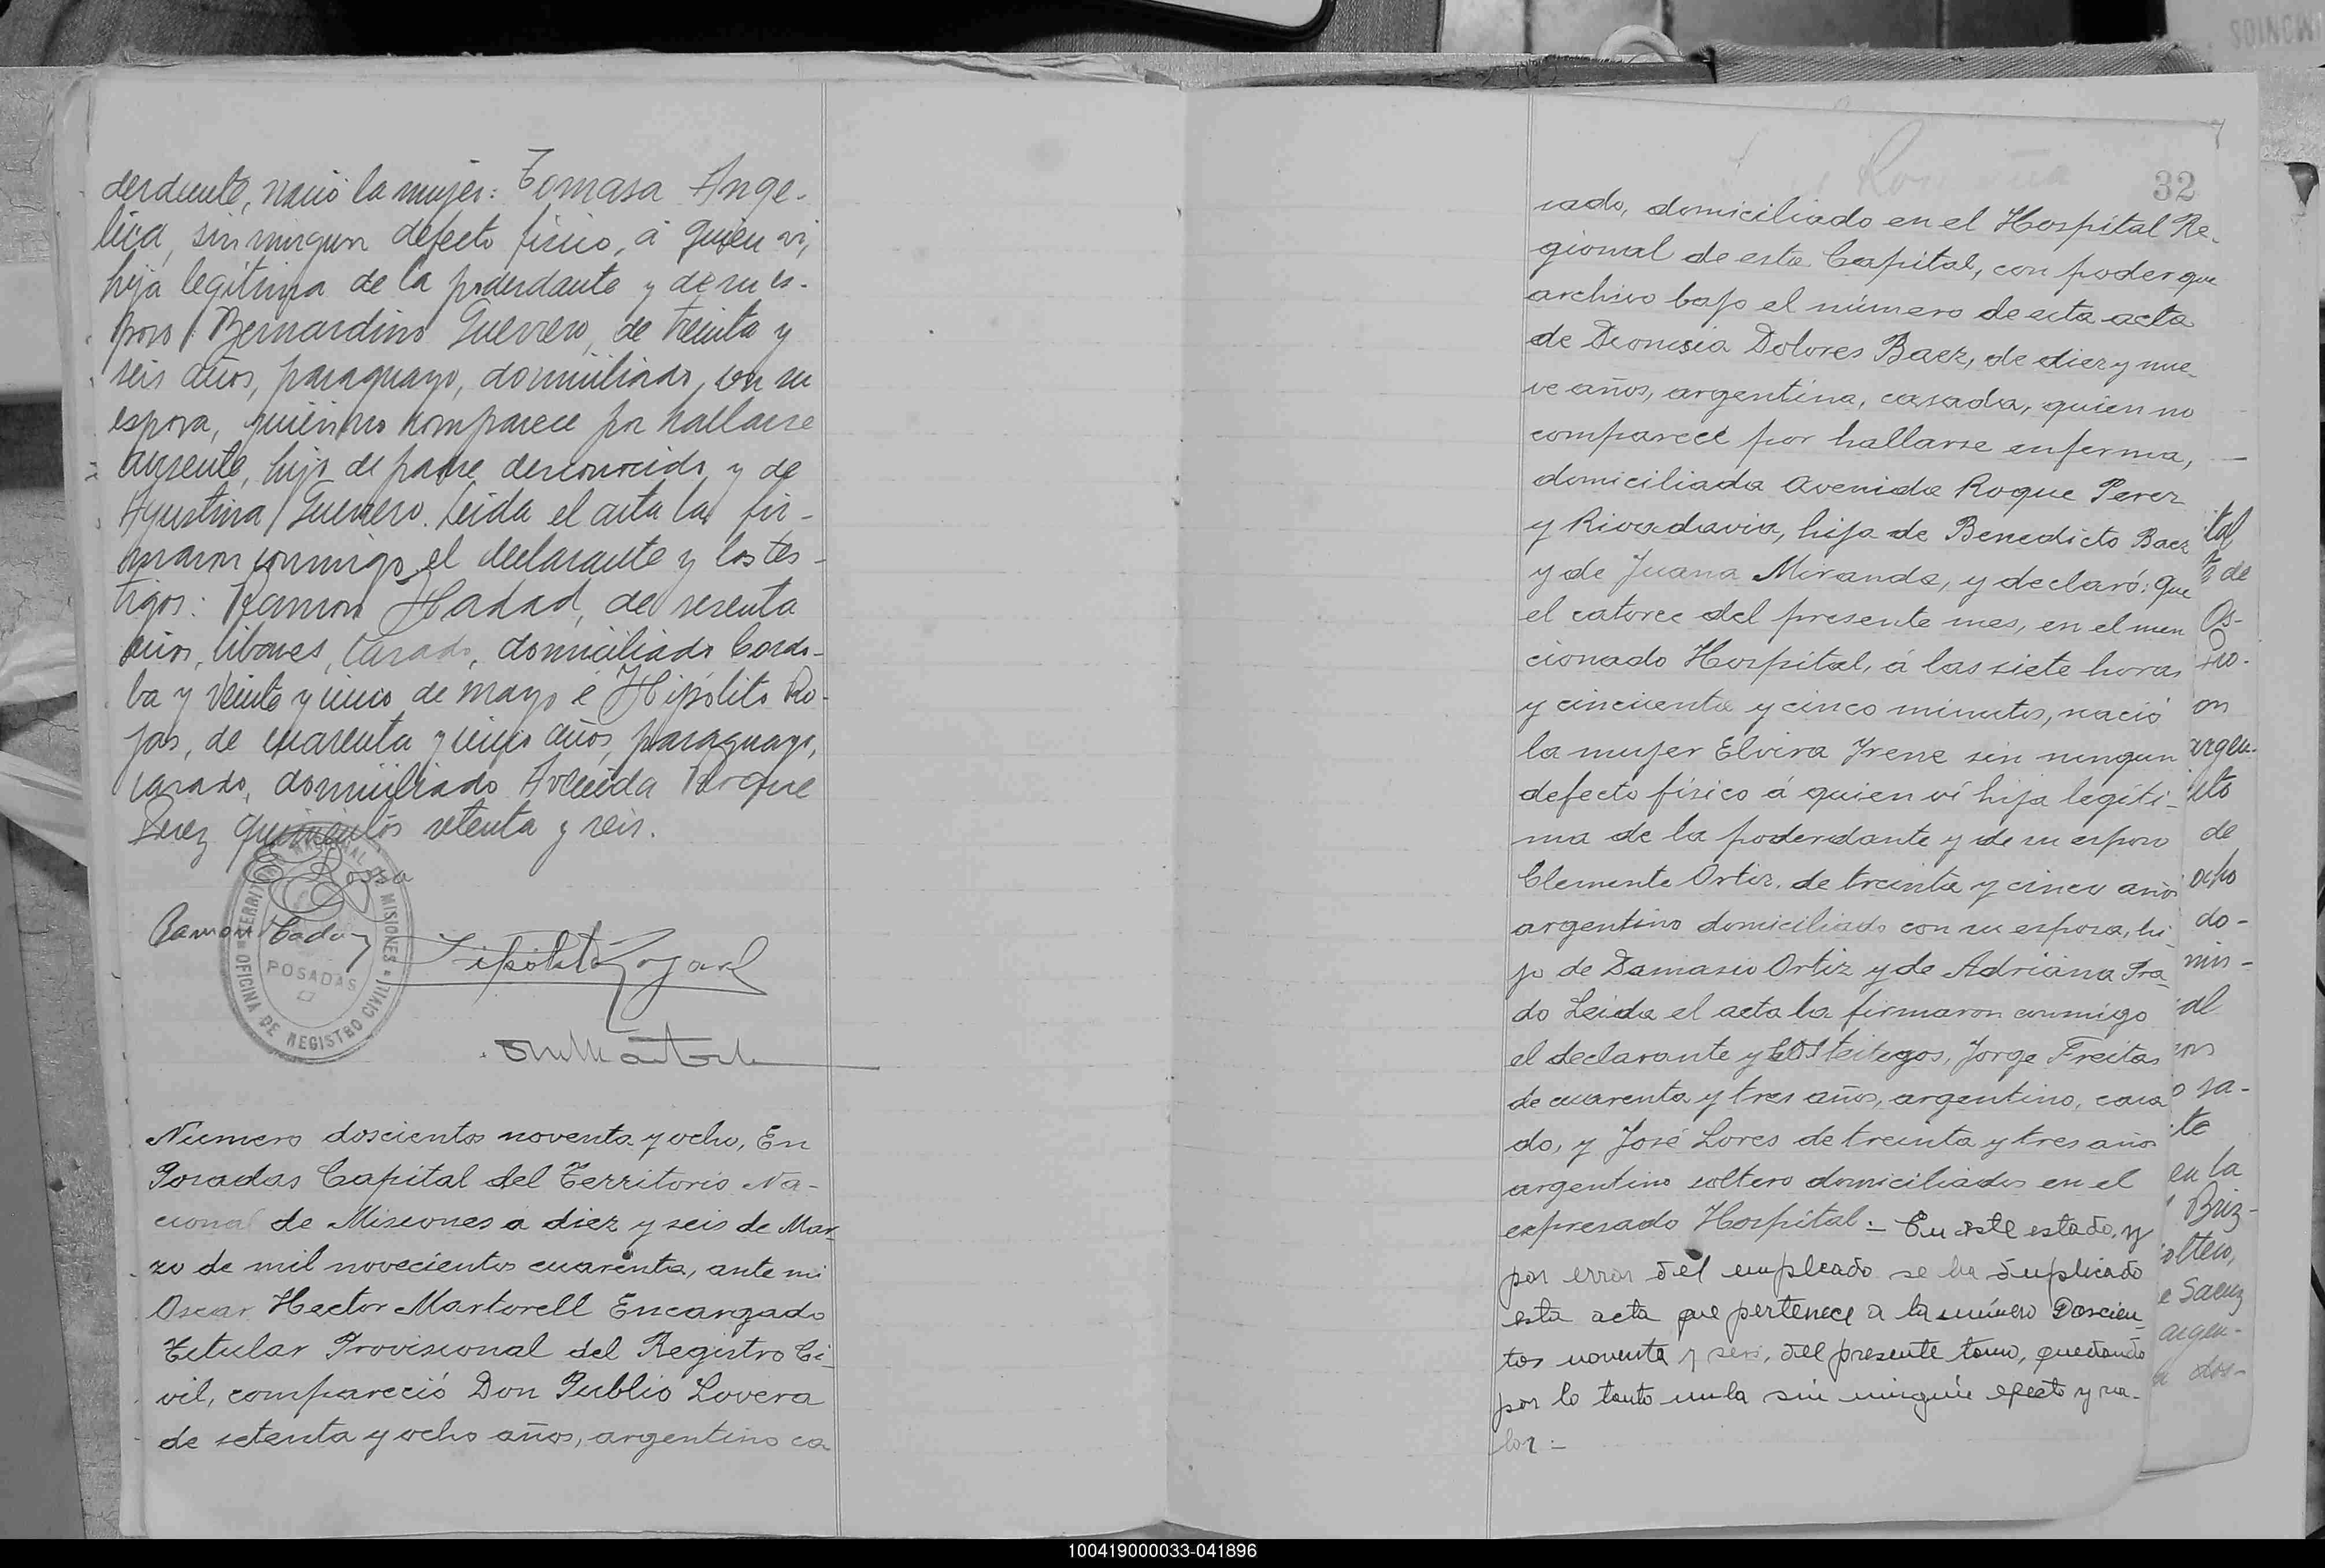 derdante, nació la mujer: Tomasa Ange-
lica, sin ningun defecto fisico, á quien vi,
hija legitima de la poderdante y de su es-
poso Bernardino Guerrero, de treinta y
seis años, paraguayo, domiciliado, con su
esposa, quien no comparece por hallarse
ausente, hijo de padre desconocido y de
Agustina Guerrero. Leida el acta la fir-
maron conmigo el declarante y los tes-
tigos: Ramon Hadad, de sesenta
años, libanes, casado, domiciliado Cordo-
ba y Veinte y cinco de mayo é Hipólito Ro-
jas, de cuarenta y cinco años, paraguayo,
casado, domiciliado Avenida Roque
Perez quinientos setenta y seis.
Rossa
Ramon Hipólito Rojas
TERRITORIO NACIONAL DE MISIONES
OFICINA DE REGISTRO CIVIL
POSADAS
Numero doscientos noventa y ocho, En
Posadas Capital del Territorio Na-
cional de Misiones a diez y seis de Mar-
zo de mil novecientos cuarenta, ante mi
Oscar Hector Martorell Encargado
Titular Provisional del Registro Ci-
vil, compareció Don Publio Lovera
de setenta y ocho años, argentino ca
32
sado, domiciliado en el Hospital Re-
gional de esta Capital, con poder que
archivo bajo el número de esta acta
de Dionisia Dolores Baez, de diez y nue-
ve años, argentina, casada, quien no
comparece por hallarse enferma,
domiciliada Avenida Roque Perez
y Rivadavia, hija de Benedicto Baez
y de Juana Miranda, y declaró: que
el catorce del presente mes, en el men
cionado Hospital, á las siete horas
y cincuenta y cinco minutos, nació
la mujer Elvira Yrene sin ningun
defecto físico á quien ví hija legíti-
ma de la poderdante y de su esposo
Clemente Ortiz, de treinta y cinco años
argentino domiciliado con su esposa, hi-
jo de Damasio Ortiz y de Adriana Pra-
do Leida el acta la firmaron conmigo
el declarante y los testigos, Jorge Freitas
de cuarenta y tres años, argentino, casa
do, y José Lores de treinta y tres años
argentino soltero domiciliados en el
expresado Hospital.- En este estado, y
por error del empleado se ha duplicado
esta acta que pertenece a la número Doscien-
tos noventa y seis, del presente tomo, quedando
por lo tanto nula sin ningún efecto y va-
lor:-
ital
de
Os-
on
argen-
de
ocho
do-
al
sa-
te
en la
Briz-
olteo,
e Saenz
argen-
dos-
100419000033-041896